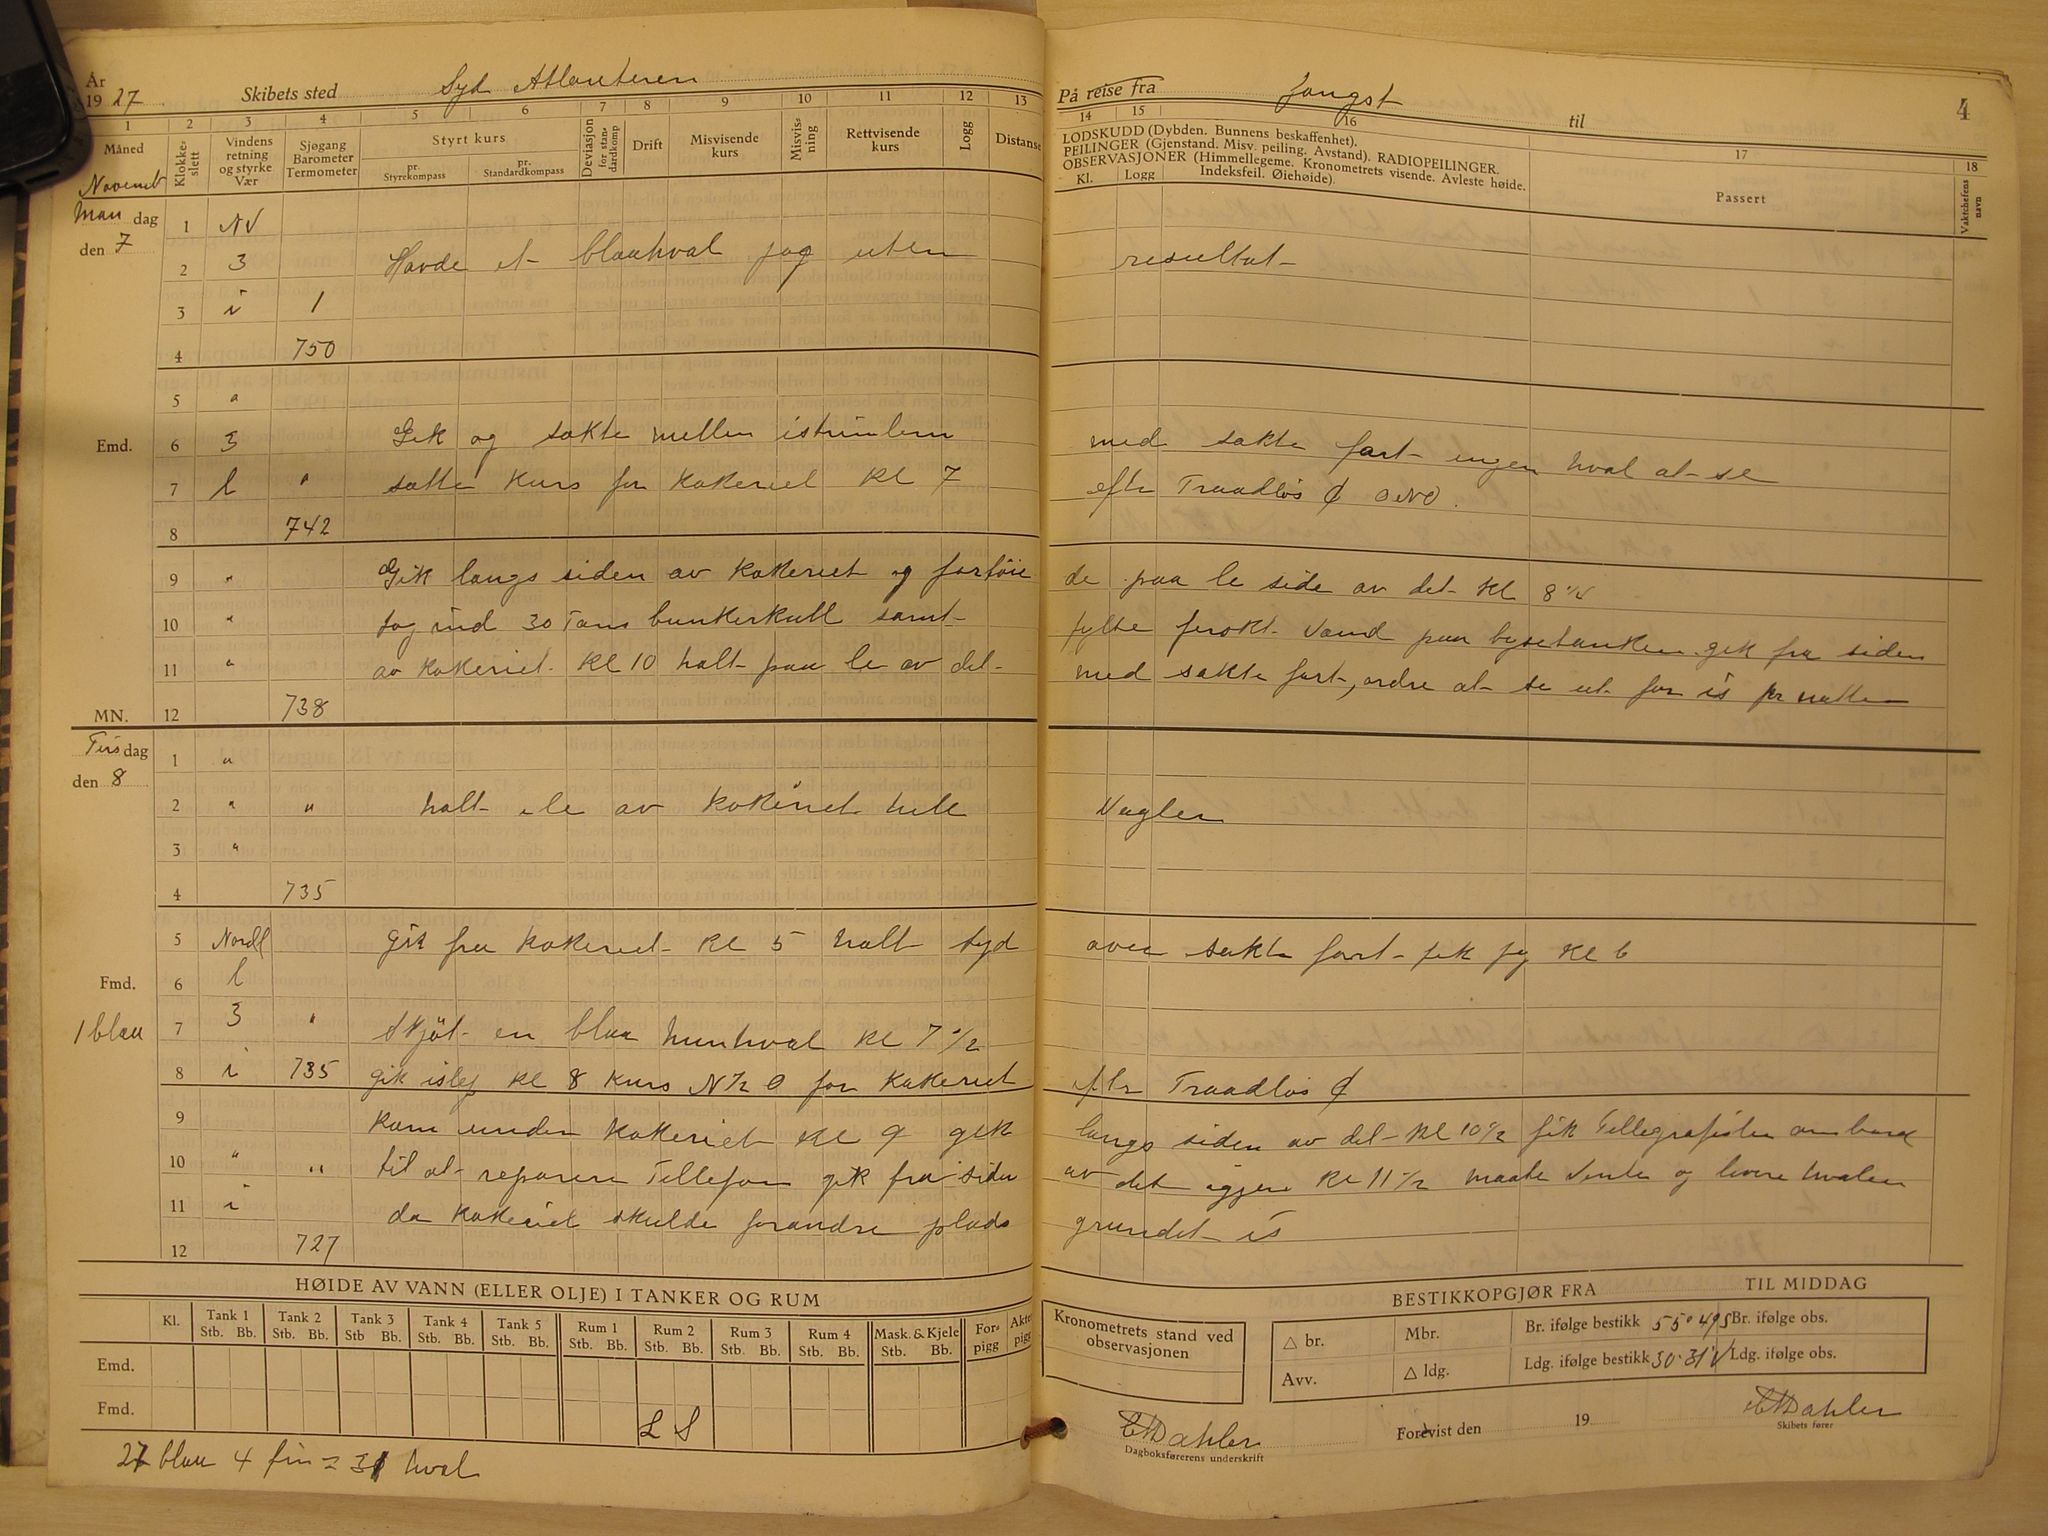 År 1927 Skibets sted Syd Atlanteren
1 2 3 4 5 6 7 8 9 10 11 12 13
Måned Klokkeslett Vindens retning og styrke Vær Sjøgang Barometer Termometer Styrt kurs pr. Styrekompass pr. Standardkompass Deviasjon for standardkomp Drift Misvisende kurs Misvisning Rettvisende kurs Logg Distanse
November
Mandag 1 NV
den 7
2 3 Havde et blaahval jag uten
3 i 1
4 750
5 "
Emd. 6 3 Gik og søkte mellem
7 l " satte kurs for kokeriet kl 7
8 742
9 " Gik langs siden av kokeriet og fortøie
10 " tog ind 30 Tons bunkerkull samt
11 " av kokeriet kl 10 holt paa le av det
MN. 12 738
Tirsdag 1 "
den 8
2 " " holt i le av kokeriet hele
3 "
4 735
5 Nordl gik fra kokeriet kl 5 holt syd
Fmd. 6 l
1 blaa 7 3 " skjøt en blaa hunhval kl 7 1/2
8 i 735 gik kl 8 kurs for kokeriet
9 kom under kokeriet kl 9 gik
10 " " til at reparere Tellefon gik fra siden
11 i da kokeriet skulde forandre plads
12 727
HØIDE AV VANN (ELLER OLJE) I TANKER OG RUM
Kl. Tank 1 Tank 2 Tank 3 Tank 4 Tank 5 Rum 1 Rum 2 Rum 3 Rum 4 Mask. & Kjele Forpigg Akterpigg
Stb. Bb. Stb. Bb. Stb. Bb. Stb. Bb. Stb. Bb. Stb. Bb. Stb. Bb. Stb. Bb. Stb. Bb. Stb. Bb.
Emd.
Fmd.
L S
27 blaa 4 fin = 31 hval
På reise fra fangst til 4
14 15 16 17 18
LODSKUDD (Dybden. Bunnens beskaffenhet).
PEILINGER (Gjenstand. Misv. peiling. Avstand). RADIOPEILINGER.
OBSERVASJONER (Himmellegeme. Kronometrets visende. Avleste høide.
Indeksfeil. Øiehøide).
Kl. Logg Passert Vaktchefens navn
resultat
med sakte fart ingen hval at se
efter Traadløs ₵ ONO.
de paa le side av det kl 8 1/4
fylte ferskt Vand paa bysetanken gik fra siden
med sakte fart, ordre at se ut for is pr natten
Vagten
over sakte fart fik jag kl 6
efter Traadløs ₵
langs siden av det kl 10 1/2 fik Tellegrafisten ombord
av det igjen kl 11 1/2 maate vente og levere hvalen
grundet is
BESTIKKOPGJØR FRA TIL MIDDAG
Kronometrets stand ved observasjonen
△ br. Mbr. Br. ifølge bestikk 55° 49 S Br. ifølge obs.
Avv. △ ldg. Ldg. ifølge bestikk 30° 31' V Ldg. ifølge obs.
Dahler
Dagboksførerens underskrift
Forevist den 19
Dahler
Skibets fører